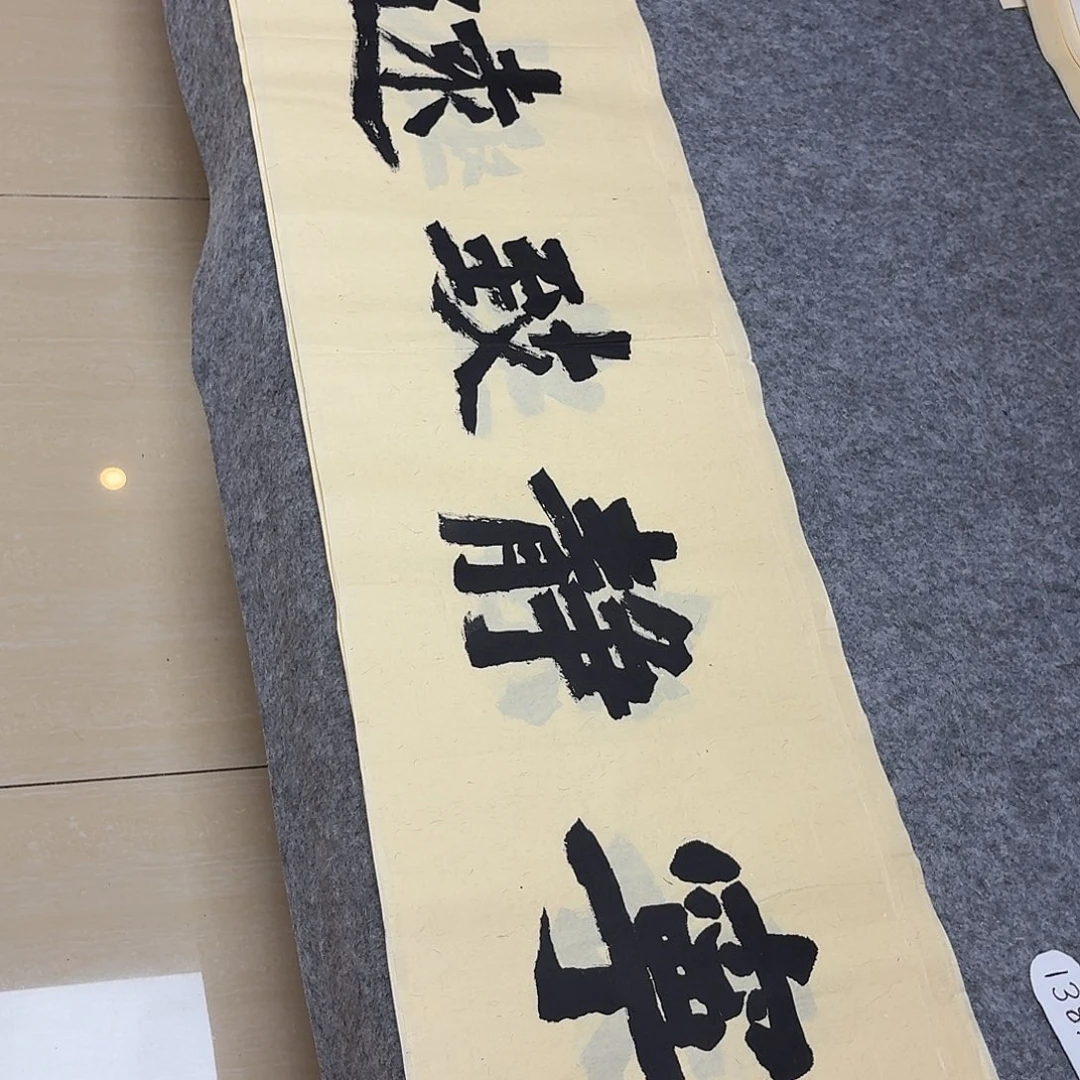 寧靜致遠
138